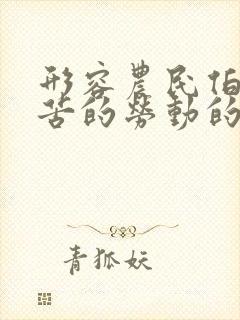 形容農民伯
苦的勞動的
青狐妖